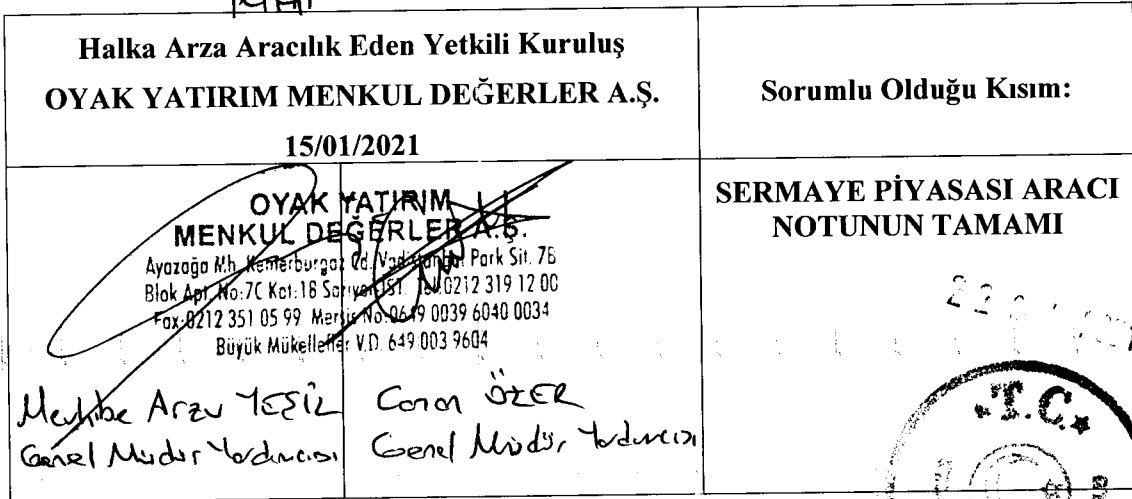 Halka Arza Aracılık Eden Yetkili Kuruluş
OYAK YATIRIM MENKUL DEĞERLER A.Ş.
15/01/2021
Sorumlu Olduğu Kısım:
OYAK YATIRIM
MENKUL DEĞERLER A.Ş.
Ayazağa Mh. Kemerburgaz Cd. Vadistanbul Park Sit. 7B
Blok Apt. No:7C Kat:18 Sarıyer/İST. Tel:0212 319 12 00
Fax:0212 351 05 99 Mersis No:0649 0039 6040 0034
Büyük Mükellefler V.D. 649 003 9604
Arzu YEŞİL
Genel Müdür Yardımcısı
Canan ÖZER
Genel Müdür Yardımcısı
SERMAYE PİYASASI ARACI
NOTUNUN TAMAMI
T.C.